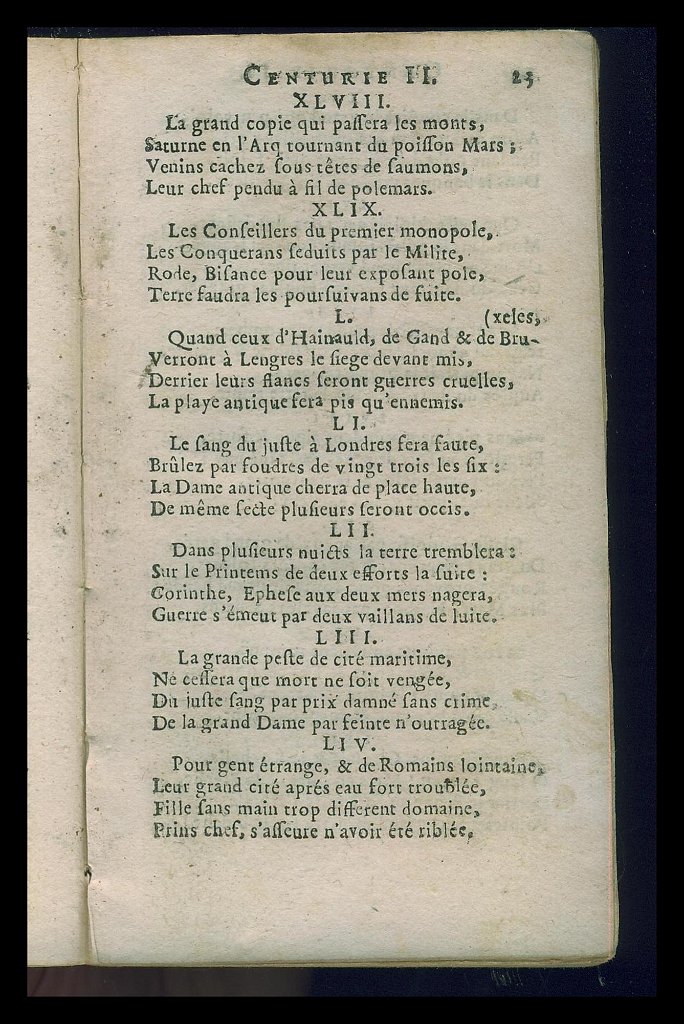 CENTURIE II. 25
XLVIII.
La grand copie qui paſſera les monts,
Saturne en l'Arq tournant du poiſſon Mars ;
Venins cachez ſous têtes de ſaumons,
Leur chef pendu à fil de polemars.
XLIX.
Les Conſeillers du premier monopole,
Les Conquerans ſeduits par le Milite,
Rode, Biſance pour leur expoſant pole,
Terre faudra les pourſuivans de fuite.
L. (xeles,
Quand ceux d'Hainauld, de Gand & de Bru-
Verront à Lengres le ſiege devant mis,
Derrier leurs flancs ſeront guerres cruelles,
La playe antique fera pis qu'ennemis.
LI.
Le ſang du juſte à Londres fera faute,
Brûlez par foudres de vingt trois les ſix :
La Dame antique cherra de place haute,
De même ſecte pluſieurs ſeront occis.
LII.
Dans pluſieurs nuicts la terre tremblera :
Sur le Printems de deux efforts la ſuite :
Corinthe, Epheſe aux deux mers nagera,
Guerre s'émeut par deux vaillans de luite.
LIII.
La grande peſte de cité maritime,
Ne ceſſera que mort ne ſoit vengée,
Du juſte ſang par prix damné ſans crime,
De la grand Dame par feinte n'outragée.
LIV.
Pour gent étrange, & de Romains lointaine,
Leur grand cité aprés eau fort troublée,
Fille ſans main trop different domaine,
Prins chef, s'aſſeure n'avoir été riblée.